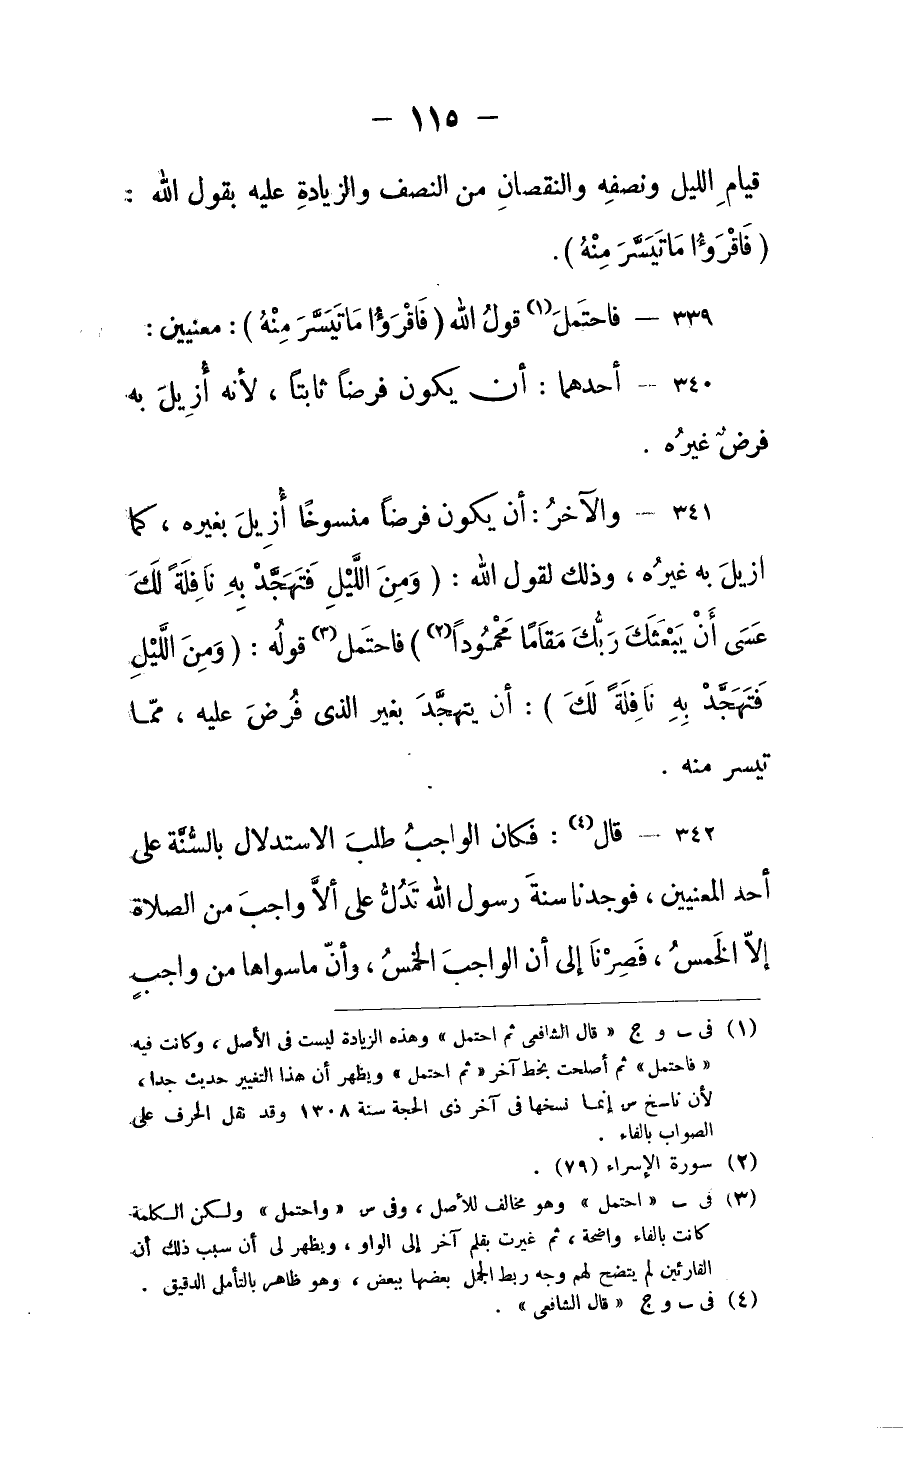 — ١١٥ —
قيامِ الليل ونصفِه والنقصانِ من النصف والزيادةِ عليه بقول الله :
( فَاقْرَءُوا مَا تَيَسَّرَ مِنْهُ ) .
٣٣٩ — فاحتَملَ(١) قولُ الله ( فَاقْرَءُوا مَا تَيَسَّرَ مِنْهُ ) : معنيين :
٣٤٠ — أحدهما : أن يكون فرضاً ثابتاً ، لأنه أُزِيلَ به
فرضٌ غيرُه .
٣٤١ — والآخرُ : أن يكون فرضاً منسوخًا أُزِيلَ بغيره ، كما
ازيلَ به غيرُه ، وذلك لقول الله : ( وَمِنَ اللَّيْلِ فَتَهَجَّدْ بِهِ نَافِلَةً لَكَ
عَسَى أَنْ يَبْعَثَكَ رَبُّكَ مَقَامًا مَحْمُوداً(٢) ) فاحتَمل(٣) قولُه : ( وَمِنَ اللَّيْلِ
فَتَهَجَّدْ بِهِ نَافِلَةً لَكَ ) : أن يتهجَّدَ بغير الذى فُرضَ عليه ، ممّا
تيسر منه .
٣٤٢ — قال(٤) : فكان الواجبُ طلبَ الاستدلال بالسُّنَّة على
أحد المعنيين ، فوجدنا سنةَ رسول الله تَدُلُّ على ألاَّ واجبَ من الصلاة
إلاّ الخَمسُ ، فَصِرْنَا إلى أن الواجبَ الخمسُ ، وأنّ ماسواها من واجبٍ
(١) فى ب و ج « قال الشافعى ثم احتمل » وهذه الزيادة ليست فى الأصل ، وكانت فيه
« فاحتمل » ثم أصلحت بخط آخر « ثم احتمل » ويظهر أن هذا التغيير حديث جدا ،
لأن ناسخ س إنما نسخها فى آخر ذى الحجة سنة ١٣٠٨ وقد نقل الحرف على
الصواب بالفاء .
(٢) سورة الإسراء (٧٩) .
(٣) فى ب « احتمل » وهو مخالف للأصل ، وفى س « واحتمل » ولكن الكلمة
كانت بالفاء واضحة ، ثم غيرت بقلم آخر إلى الواو ، ويظهر لى أن سبب ذلك أن
القارئين لم يتضح لهم وجه ربط الجمل بعضها ببعض ، وهو ظاهر بالتأمل الدقيق .
(٤) فى ب و ج « قال الشافعى » .